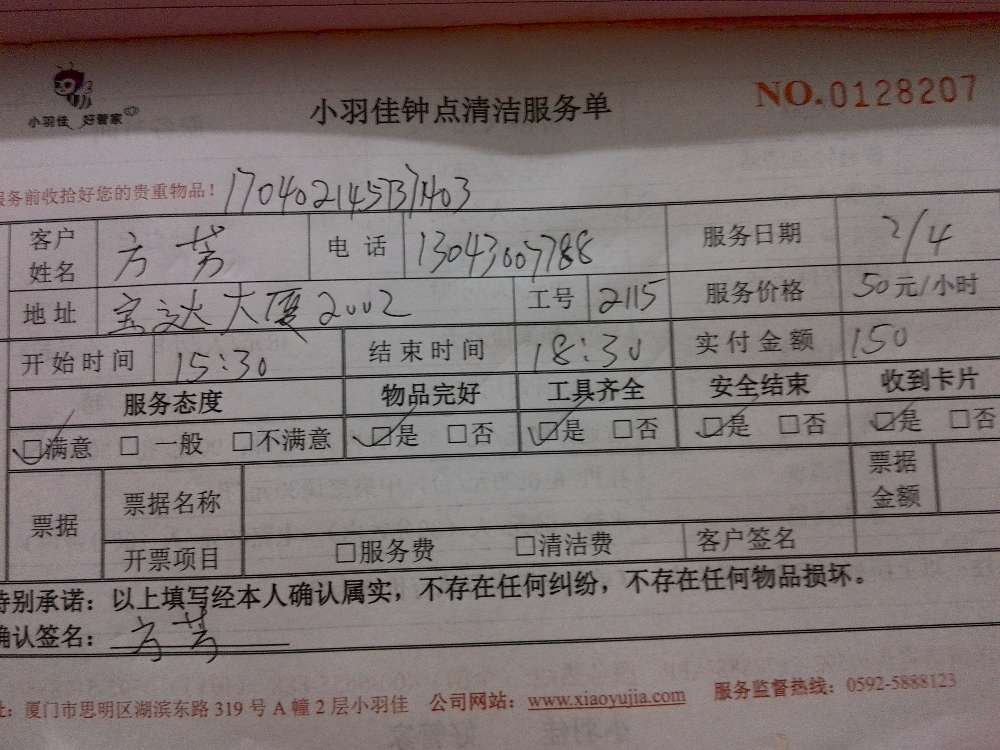 小羽佳 好管家
小羽佳钟点清洁服务单
NO.0128207
服务前收拾好您的贵重物品！
客户姓名 方芳 电话 13043007788 服务日期 2/4
地址 宝达大厦2002 工号 2115 服务价格 50元/小时
开始时间 15:30 结束时间 18:30 实付金额 150
服务态度 物品完好 工具齐全 安全结束 收到卡片
☑满意 □一般 □不满意 ☑是 □否 ☑是 □否 ☑是 □否 ☑是 □否
票据 票据名称 票据金额
开票项目 □服务费 □清洁费 客户签名
特别承诺：以上填写经本人确认属实，不存在任何纠纷，不存在任何物品损坏。
确认签名：方芳
址：厦门市思明区湖滨东路319号A幢2层小羽佳 公司网站：www.xiaoyujia.com 服务监督热线：0592-5888123